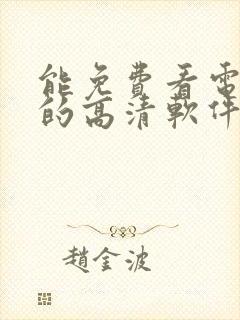 能免費看電
的高清軟件
趙金波